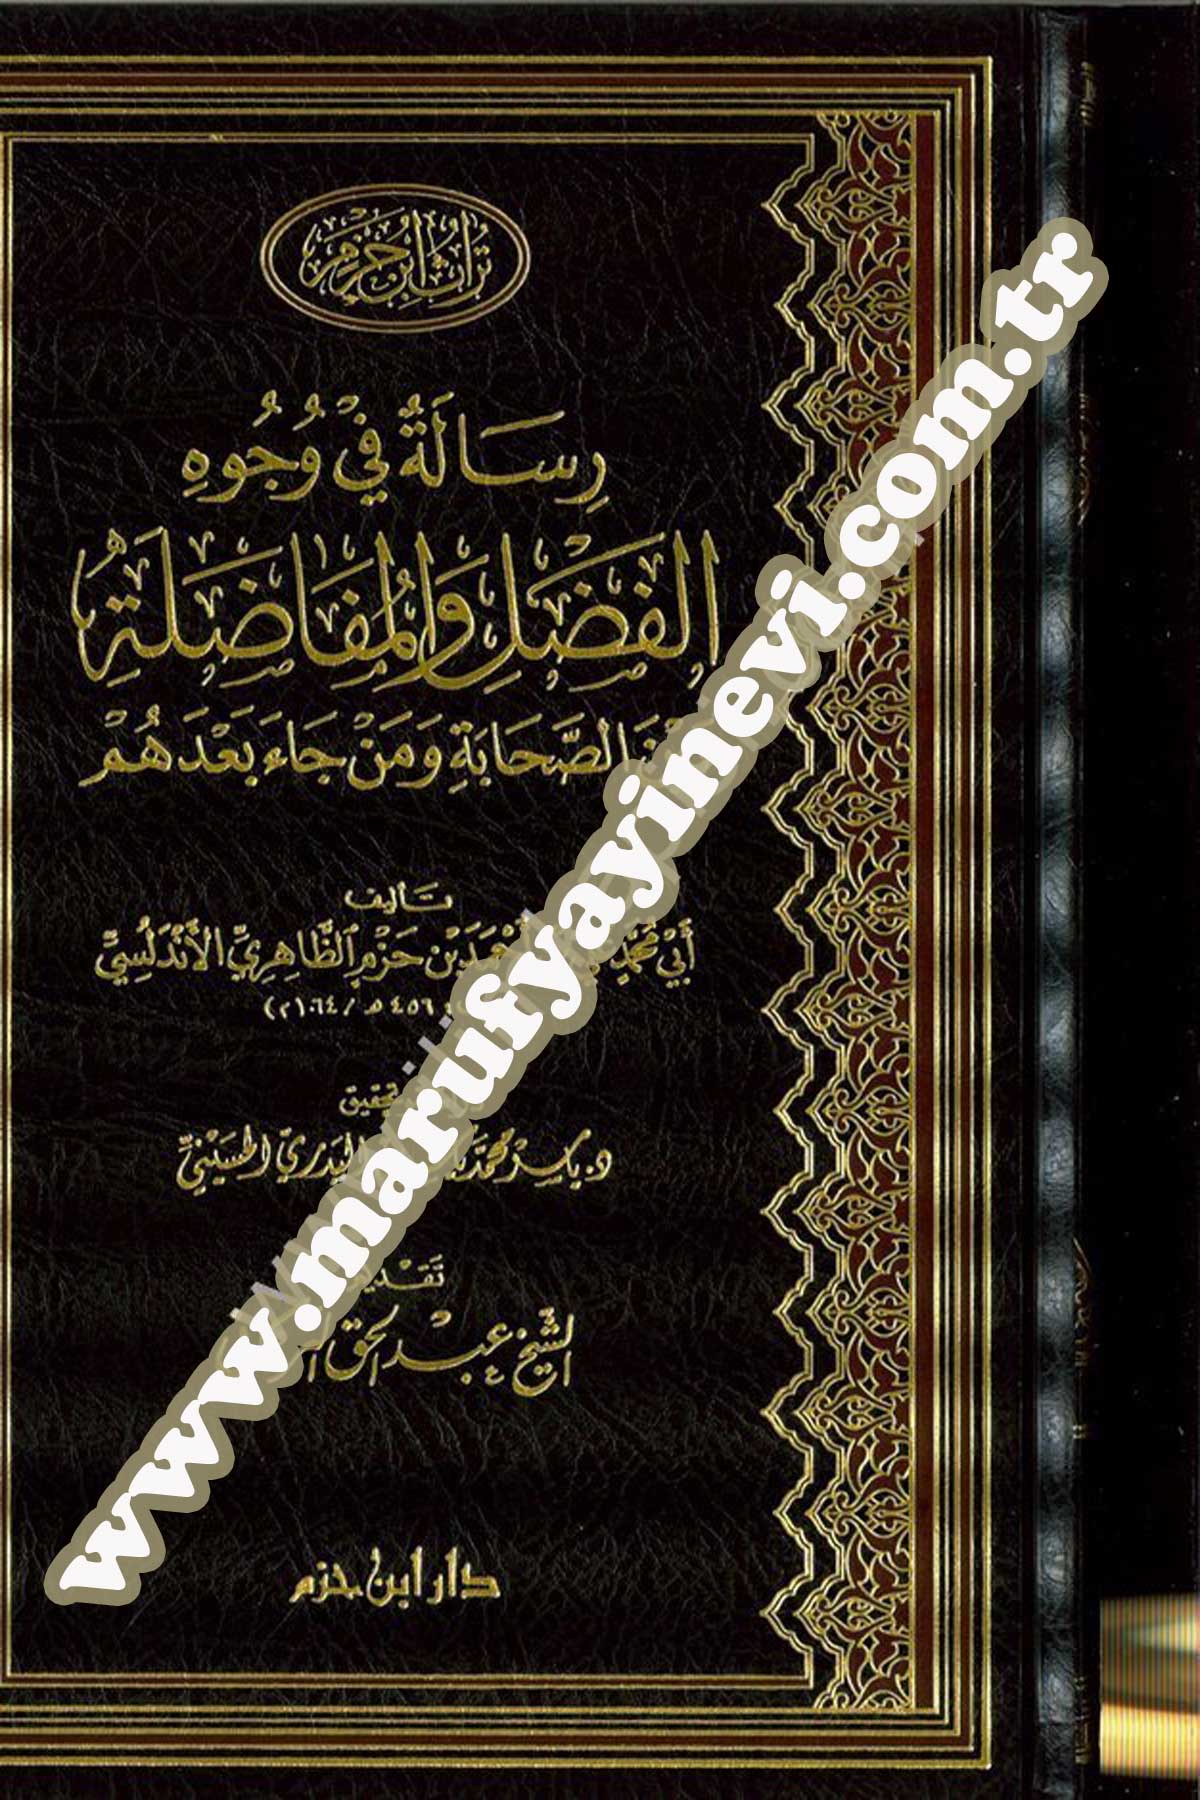 تُراثُ ابْنِ حَزْمٍ
رِسَالَةٌ فِيْ وُجُوهِ
الفَضْلِ وَالمُفَاضَلَةِ
الصَّحَابَةِ وَمَنْ جَاءَ بَعْدَهُمْ
تَأليف
أَبِي مُحَمَّدٍ بْنِ حَزْمٍ الظَّاهِرِيِّ الأَنْدَلُسِيِّ
٤٥٦ هـ / ١٠٦٤م)
تحقيق
د. يَاسِرْ مُحَمَّدْ البَدْرِيّ الحُسَيْنِيّ
تَقْديم
الشَّيْخ عَبْد الحَق
دار ابن حزم
www.marufyayinevi.com.tr